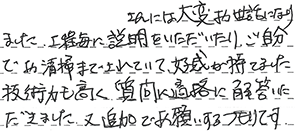 さんには大変お世話になり
ました。工程毎に説明をいただいたり、ご自分
でお清掃までされていて、好感が持てました
技術力も高く、質問に真摯に回答いた
だきました 又追加でお願いするつもりです